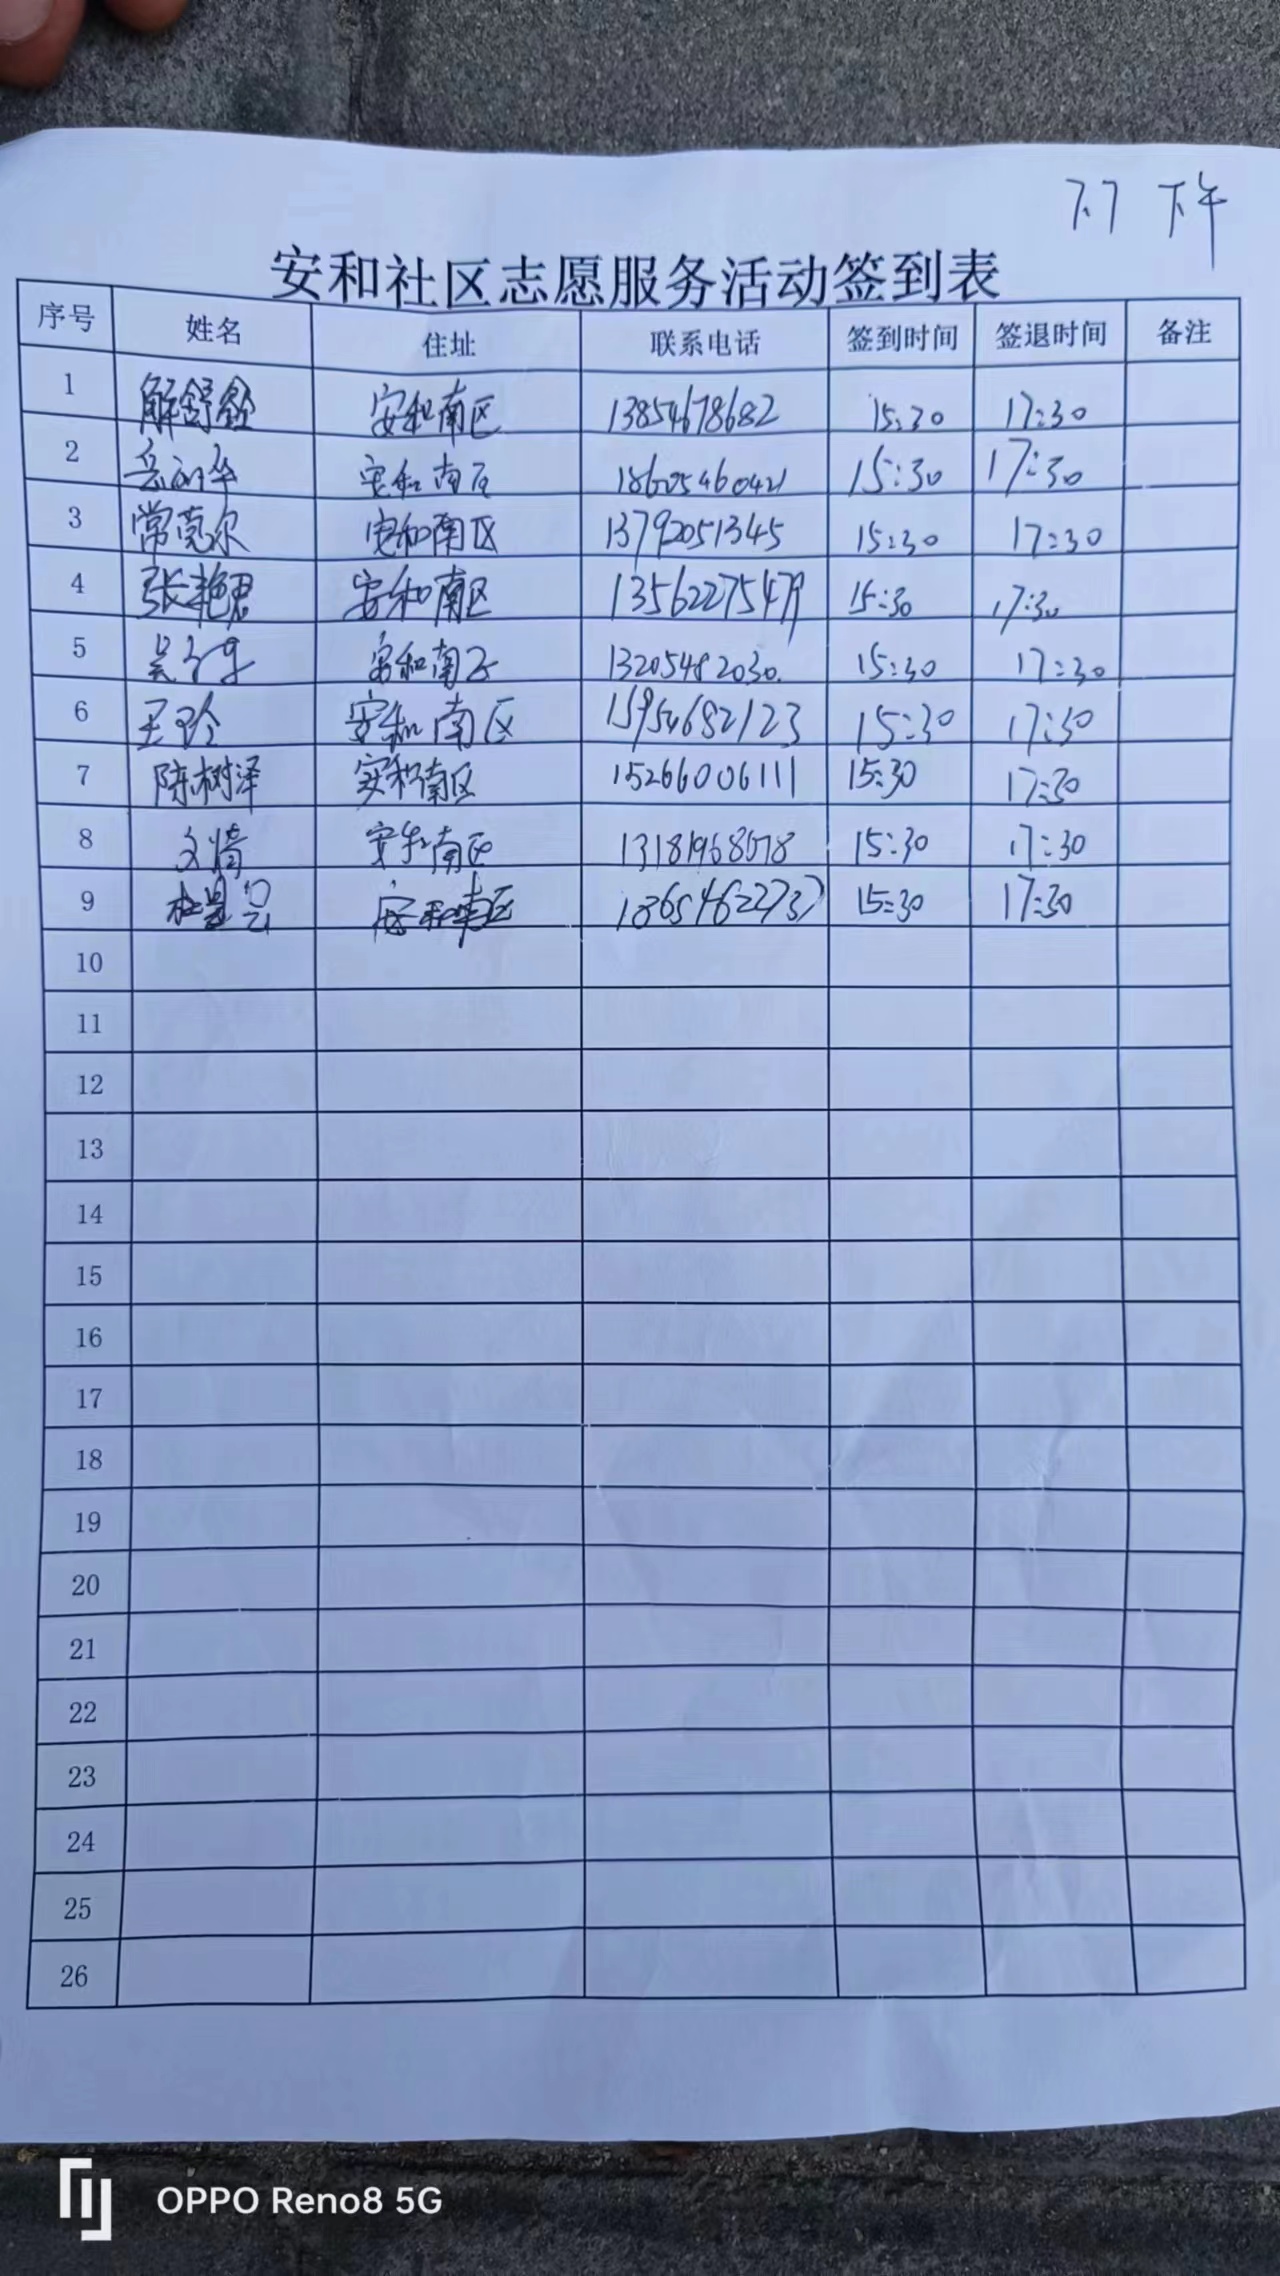 7.7 下午
安和社区志愿服务活动签到表
序号 姓名 住址 联系电话 签到时间 签退时间 备注
1 解舒 安和南区 13854678682 15:30 17:30
2 岳 安和南区 18605460421 15:30 17:30
3 常莞尔 安和南区 13792051345 15:30 17:30
4 张艳君 安和南区 13562275479 15:30 17:30
5 吴 安和南区 13205482030. 15:30 17:30
6 王玲 安和南区 15954682123 15:30 17:30
7 陈树泽 安和南区 15266006111 15:30 17:30
8 文倩 安和南区 15:30 17:30
9 杜 安和南区 15:30 17:30
10
11
12
13
14
15
16
17
18
19
20
21
22
23
24
25
26
OPPO Reno8 5G